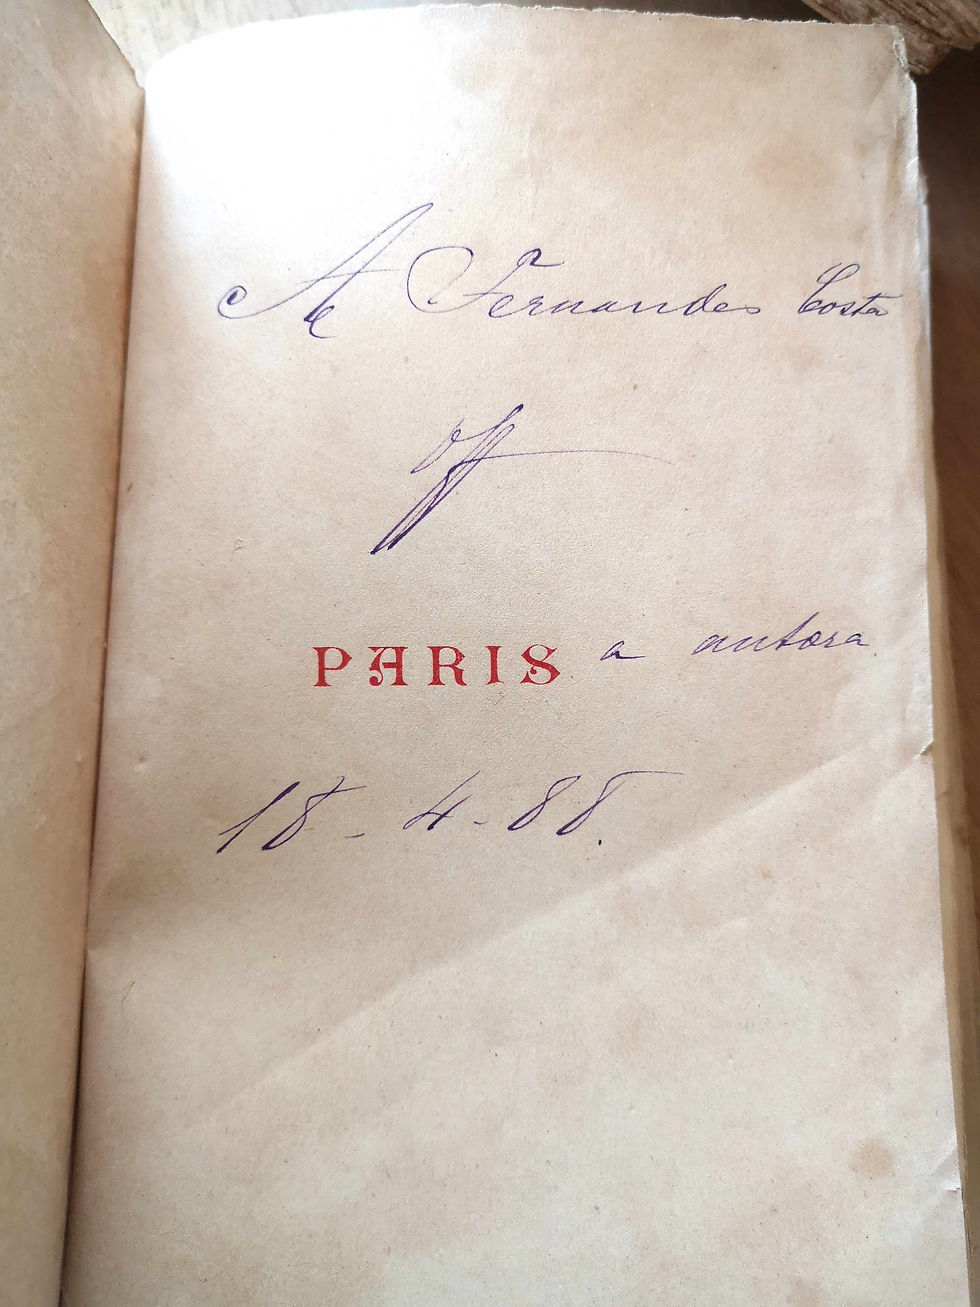 A Fernandes Costa
off
PARIS a autora
18-4-88.